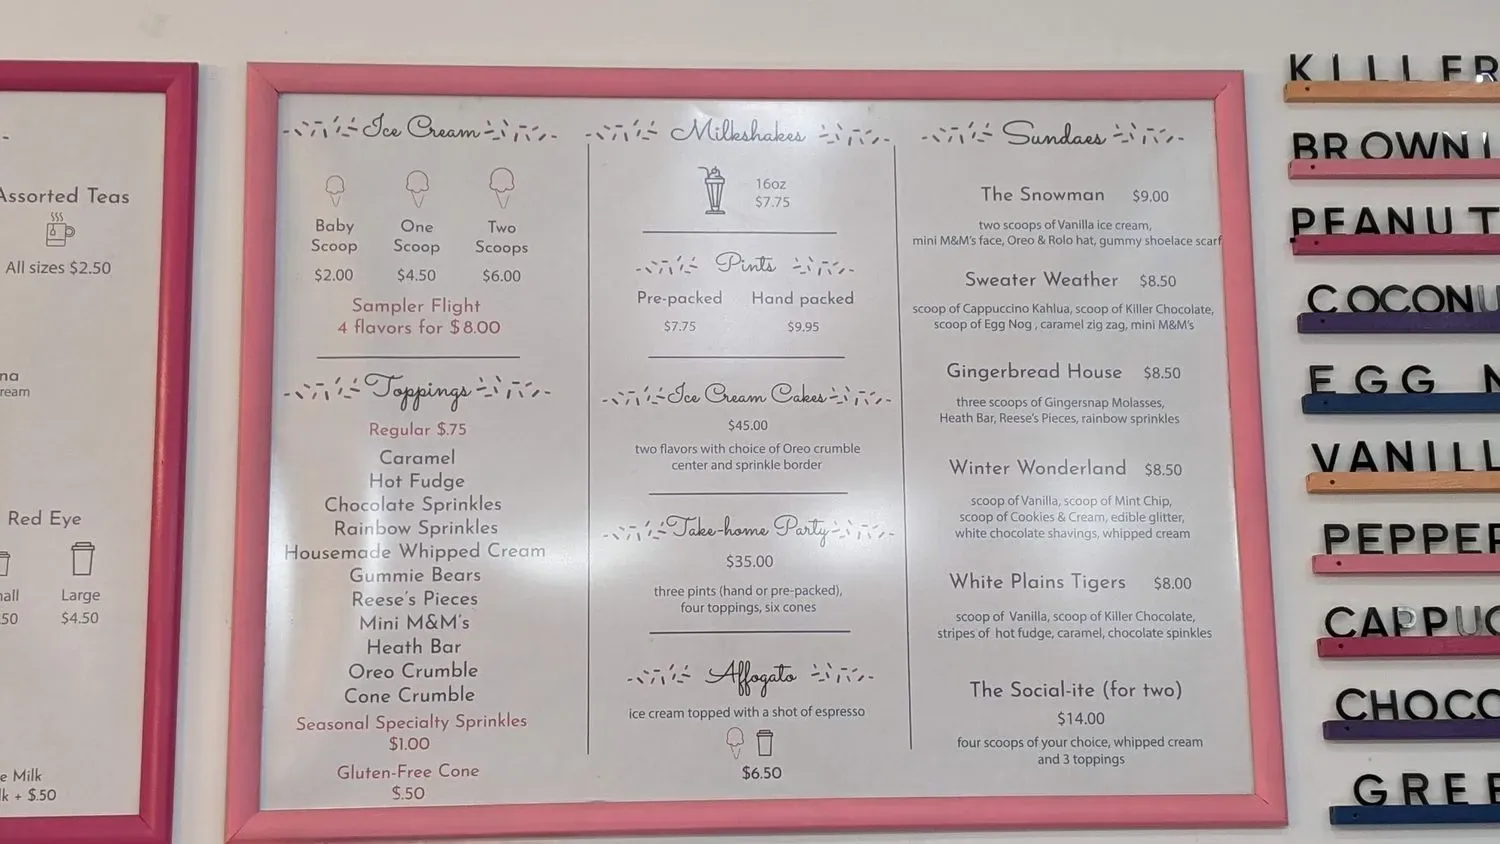 Assorted Teas
All sizes $2.50
Red Eye
Large
$4.50
Milk
+ $.50
Ice Cream
Baby Scoop
$2.00
One Scoop
$4.50
Two Scoops
$6.00
Sampler Flight
4 flavors for $8.00
Toppings
Regular $.75
Caramel
Hot Fudge
Chocolate Sprinkles
Rainbow Sprinkles
Housemade Whipped Cream
Gummie Bears
Reese's Pieces
Mini M&M's
Heath Bar
Oreo Crumble
Cone Crumble
Seasonal Specialty Sprinkles
$1.00
Gluten-Free Cone
$.50
Milkshakes
16oz
$7.75
Pints
Pre-packed
$7.75
Hand packed
$9.95
Ice Cream Cakes
$45.00
two flavors with choice of Oreo crumble
center and sprinkle border
Take-home Party
$35.00
three pints (hand or pre-packed),
four toppings, six cones
Affogato
ice cream topped with a shot of espresso
$6.50
Sundaes
The Snowman $9.00
two scoops of Vanilla ice cream,
mini M&M's face, Oreo & Rolo hat, gummy shoelace scarf
Sweater Weather $8.50
scoop of Cappuccino Kahlua, scoop of Killer Chocolate,
scoop of Egg Nog , caramel zig zag, mini M&M's
Gingerbread House $8.50
three scoops of Gingersnap Molasses,
Heath Bar, Reese's Pieces, rainbow sprinkles
Winter Wonderland $8.50
scoop of Vanilla, scoop of Mint Chip,
scoop of Cookies & Cream, edible glitter,
white chocolate shavings, whipped cream
White Plains Tigers $8.00
scoop of Vanilla, scoop of Killer Chocolate,
stripes of hot fudge, caramel, chocolate spinkles
The Social-ite (for two)
$14.00
four scoops of your choice, whipped cream
and 3 toppings
KILLER
BROWNI
PEANUT
COCONU
EGG N
VANILL
PEPPER
CAPPUC
CHOCO
GREE